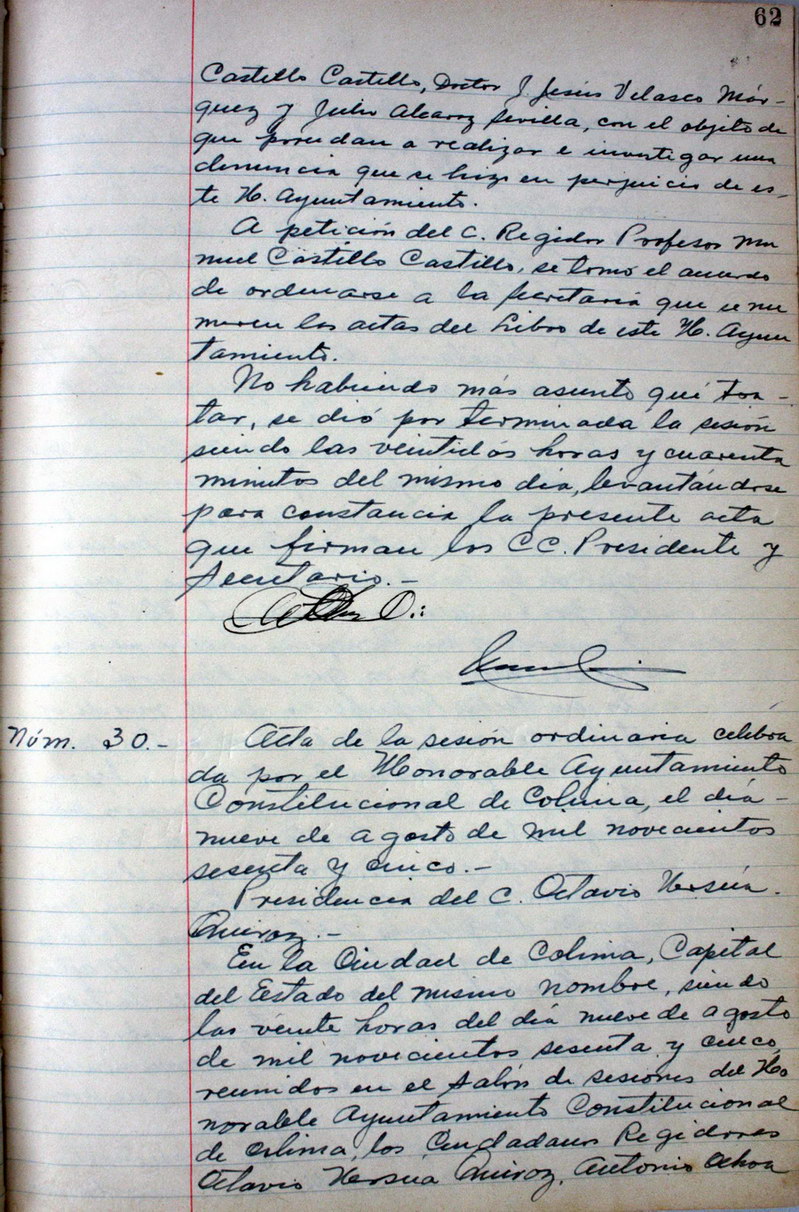 62
Castillo Castillo, Doctor J. Jesús Velasco Már-
quez y Julio Alcaraz Sevilla, con el objeto de
que procedan a realizar e investigar una
denuncia que se hizo en perjuicio de es-
te H. Ayuntamiento.
A petición del C. Regidor Profesor Ma
nuel Castillo Castillo, se tomó el acuerdo
de ordenarse a la Secretaría que se nu
meren las actas del Libro de este H. Ayun
tamiento.
No habiendo más asunto qué tra-
tar, se dió por terminada la sesión
siendo las veintidós horas y cuarenta
minutos del mismo día, levantándose
para constancia la presente acta
que firman los CC. Presidente y
Secretario.-
Núm. 30.- Acta de la sesión ordinaria celebra
da por el Honorable Ayuntamiento
Constitucional de Colima, el día-
nueve de agosto de mil novecientos
sesenta y cinco.-
Presidencia del C. Octavio Ursúa.
Quiroz.-
En la Ciudad de Colima, Capital
del Estado del mismo nombre, siendo
las veinte horas del día nueve de agosto
de mil novecientos sesenta y cinco,
reunidos en el salón de sesiones del Ho
norable Ayuntamiento Constitucional
de Colima, los Ciudadanos Regidores
Octavio Ursúa Quiroz, Antonio Ochoa